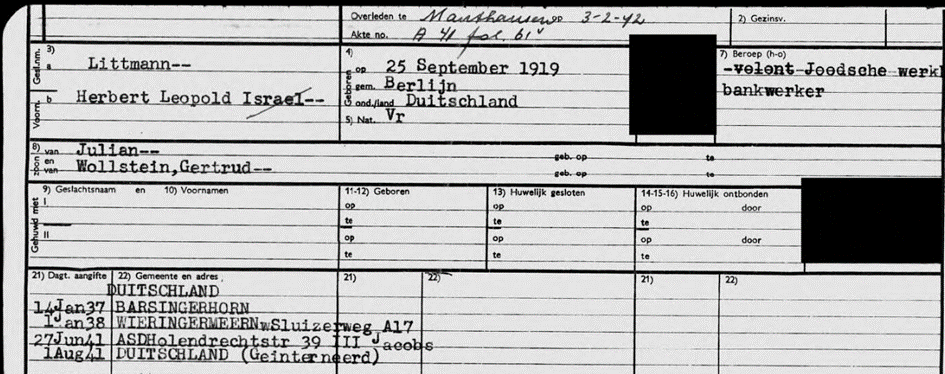 Overleden te Mauthausen op 3-2-42
Akte no. A 41 fol. 61v
2) Gezinsv.
3)
Gesl.nm. a Littmann--
Voorn. b Herbert Leopold Israel--
4)
Geboren op 25 September 1919
gem. Berlijn
ond./land Duitschland
5) Nat. Vr
7) Beroep (h-o)
-volont Joodsche werkl
bankwerker
8) zoon van Julian-- geb. op te
en van Wollstein,Gertrud-- geb. op te
9) Geslachtsnaam en 10) Voornamen 11-12) Geboren 13) Huwelijk gesloten 14-15-16) Huwelijk ontbonden
Gehuwd met I op op op door
te te te
II op op op door
te te te
21) Dagt. aangifte 22) Gemeente en adres 21) 22) 21) 22)
DUITSCHLAND
14Jan37 BARSINGERHORN
1Jan38 WIERINGERMEERNwSluizerweg A17
27Jun41 ASDHolendrechtstr 39 III Jacobs
1Aug41 DUITSCHLAND (Geinterneerd)